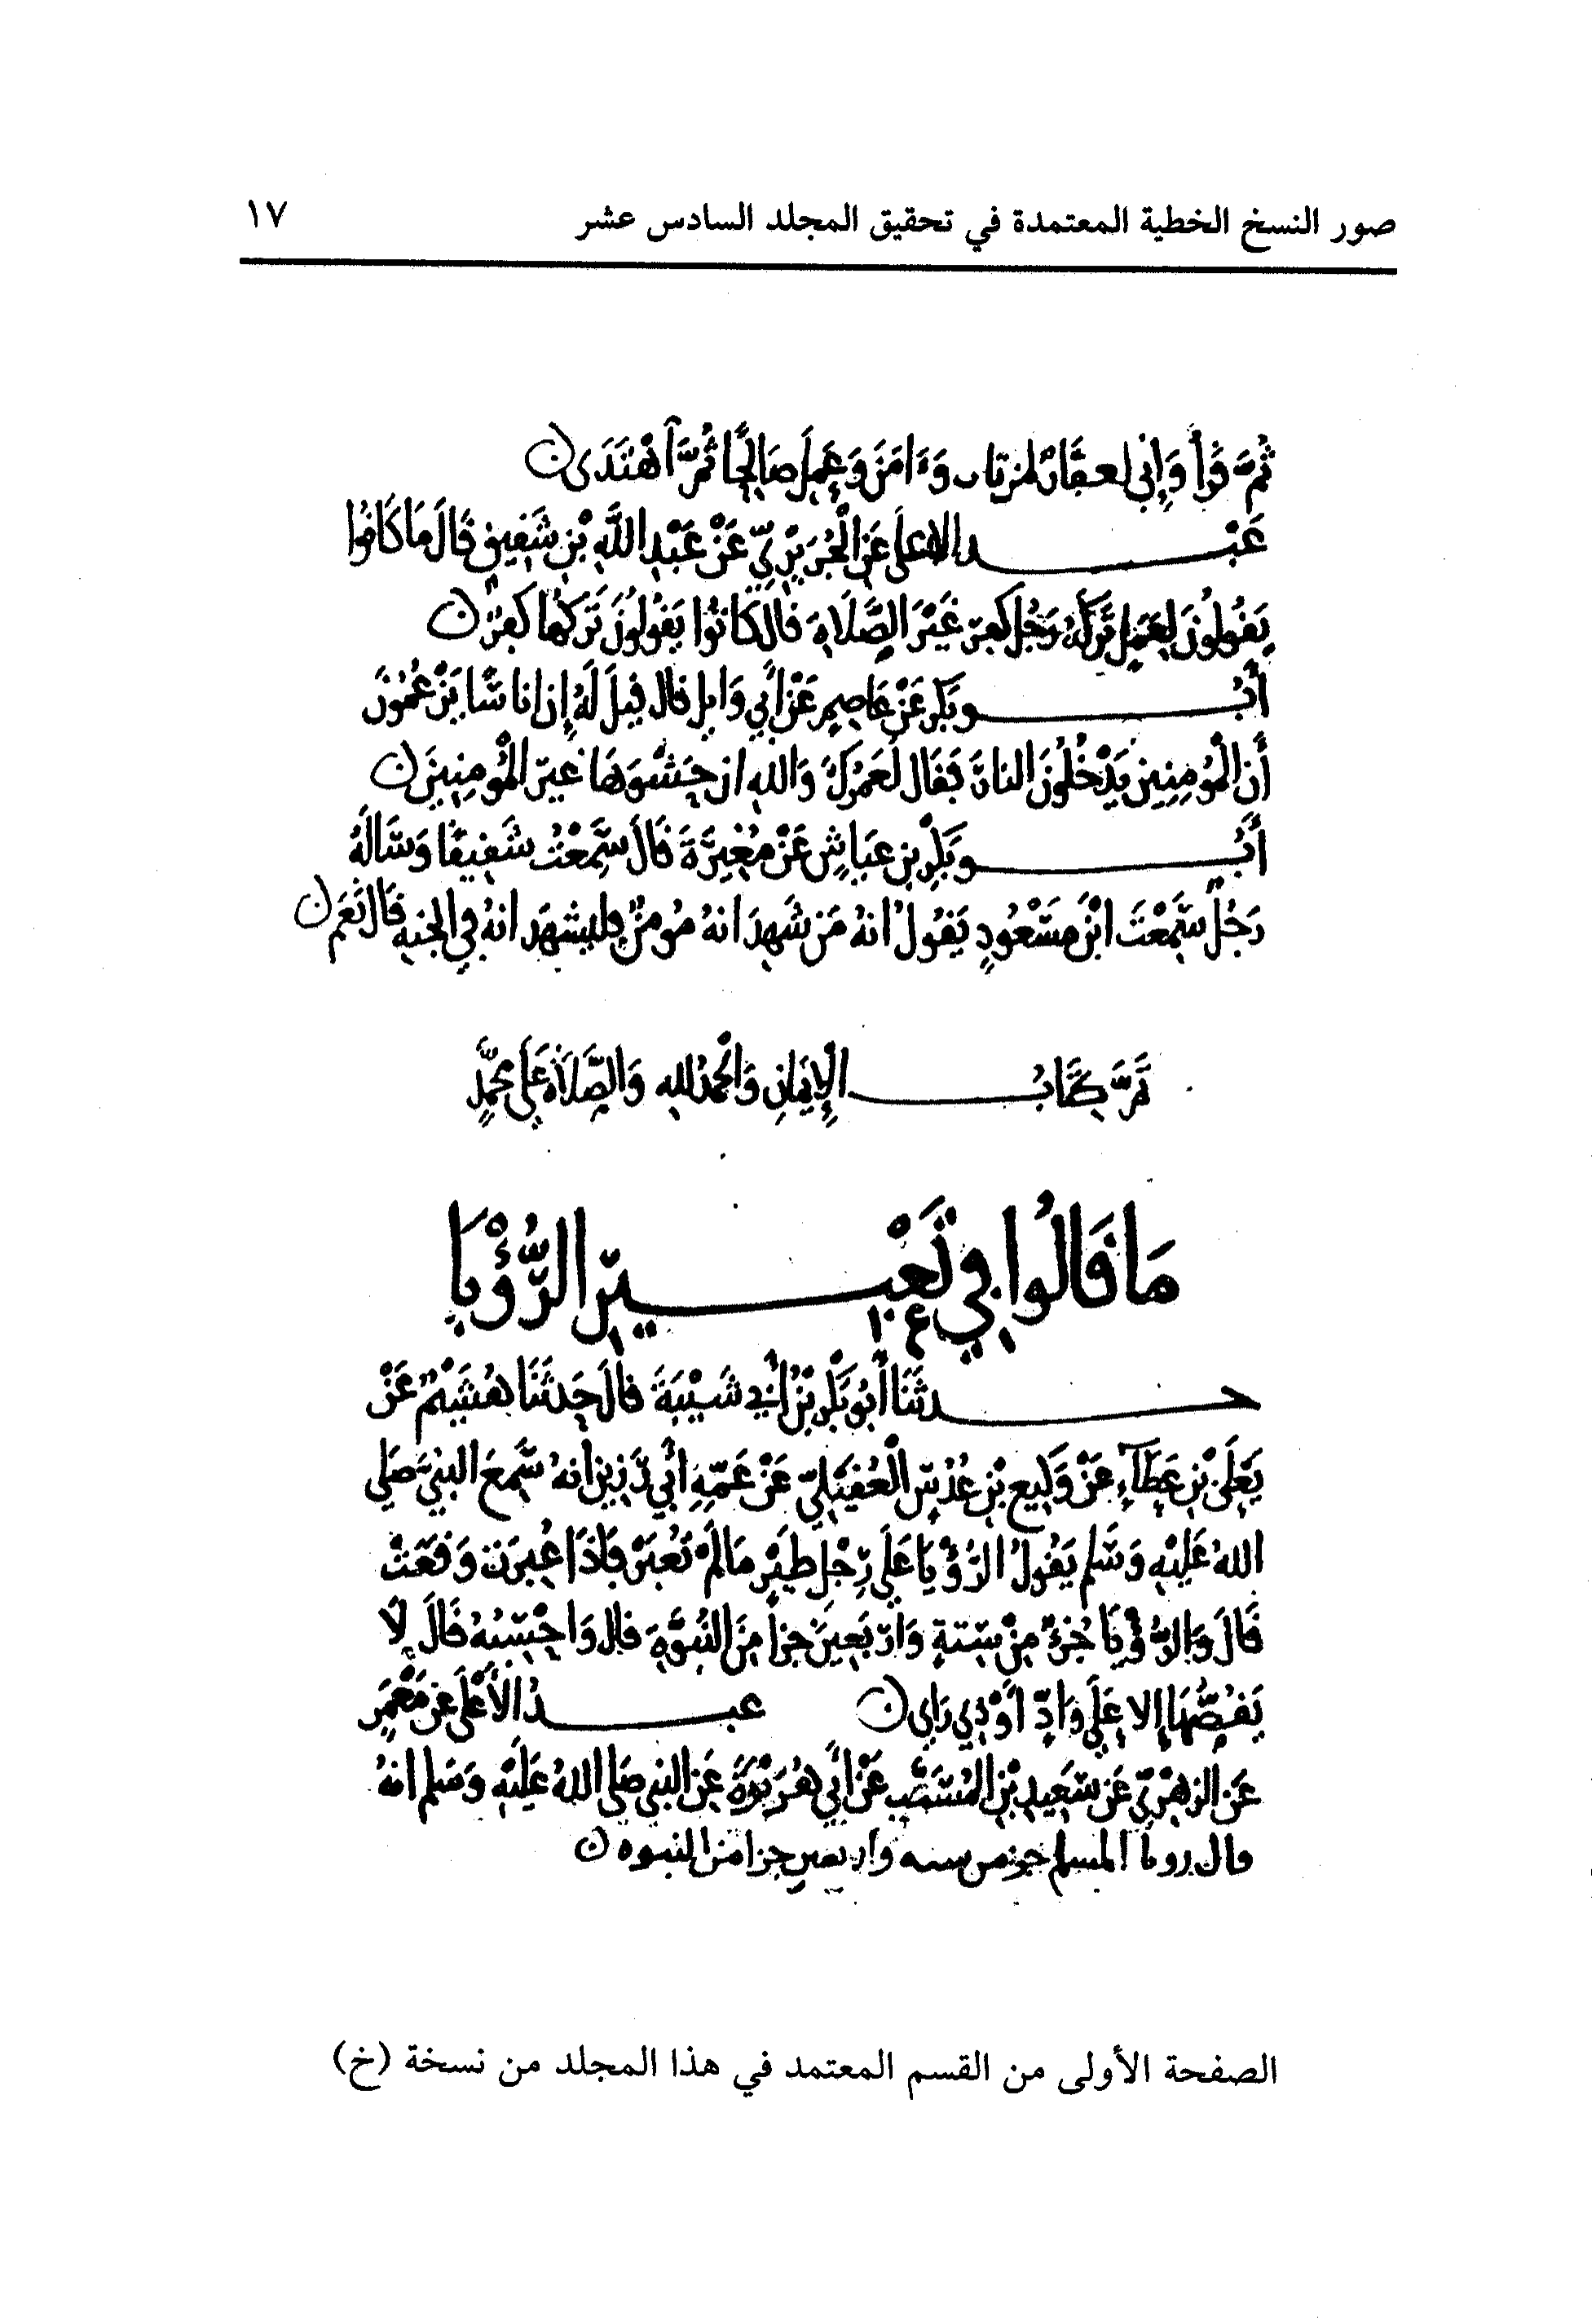 صور النسخ الخطية المعتمدة في تحقيق المجلد السادس عشر ١٧
ثُمَّ قرأ وَإِنِّي لغفَّارٌ لمن تاب وَءَامَنَ وَعَمِلَ صَالِحًا ثُمَّ اهْتَدَى ن
عَبْد الاعلى عَنِ الْجُرَيْرِيِّ عَنْ عَبْدِ اللَّهِ بْنِ شَقِيقٍ قَالَ مَا كَانُوا
يَقُولُونَ لِعَمَلٍ تَرَكَهُ رَجُلٌ كفر غَيْرَ الصَّلَاةِ قال كَانُوا يَقُولُونَ تَرْكُهَا كفر ن
أَبُو بَكر عَنْ عَاصِمٍ عَنْ أَبِي وَايِلٍ قال قِيلَ لَهُ إِن اناسًا يَزْعُمُونَ
أَن الْمُؤمِنِين يَدْخُلُونَ النارَ فَقَال لَعَمْرُكَ وَاللهِ ان حَشْوَهَا غيرَ المُؤمِنِينَ ن
أَبُو بَكْرِ بن عَيَاشٍ عَنْ مُغِيرَةَ قَالَ سَمِعْتُ شَقِيقًا وَسَالَهُ
رَجُلٌ سَمِعْتَ ابْنَ مَسْعُودٍ يَقُولُ انهُ مَن شَهِدَ انهُ مُومنٌ فليشهَد انهُ في الجنهِ قَال نَعَم ن
تَمَّ كِتَابُ الْإِيمَانِ وَالْحَمدُ للهِ وَالصَّلَاةُ عَلَى مُحَمَّدٍ
مَا قَالُوا فِي تَعْبِيرِ الرُّؤْيَا
حدثَنَا أَبُو بَكْرِ بْنُ أَبِي شَيْبَةَ قالَ حَدثَنَا هُشَيْمٌ عَنْ
يَعْلَى بْنِ عَطَآءٍ عَنْ وَكِيعِ بْنِ عُدُسٍ الْعُقَيْلِيِّ عَنْ عَمِّهِ أَبِي رَزِين انهُ سَمِعَ النبيَّ صَلى
اللهُ عَلَيْهِ وَسَلم يَقُولُ الرُّؤْيَا عَلَى رِجْلِ طَيْرٍ مَا لَمْ تُعْبَرْ فَإِذَا عُبِرَت وَقَعَتْ
قَالَ وَالرُّؤْيَا جُزْءٌ مِنْ سِتةٍ وَارْبَعِينَ جزأً مِنَ النُّبُوَّةِ قال وَاحْسِبُهُ قَالَ لَا
يَقُصُّهَا إِلا عَلَى وَادٍّ أَوْ ذِي رَايٍ ن عبدُ الأَعْلَى عن مَعْمَرٍ
عَنِ الزهْرِيِّ عَن سَعِيدِ بْنِ الْمُسَيَّبِ عَنْ أَبِي هُرَيْرَةَ عَنِ النبي صَلى اللهُ عَلَيْهِ وَسَلم انهُ
قال رويا المسلم جزء من سته واربعين جزا من النبوه ن
الصفحة الأولى من القسم المعتمد في هذا المجلد من نسخة (خ)